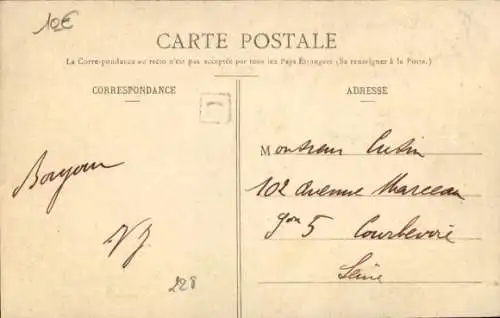 10€
CARTE POSTALE
La Correspondance au recto n'est pas acceptée par tous les Pays Étrangers (Se renseigner à la Poste.)
CORRESPONDANCE
ADRESSE
Bonjour
Monsieur
102 avenue Marceau
5 Courbevoie
Seine
228